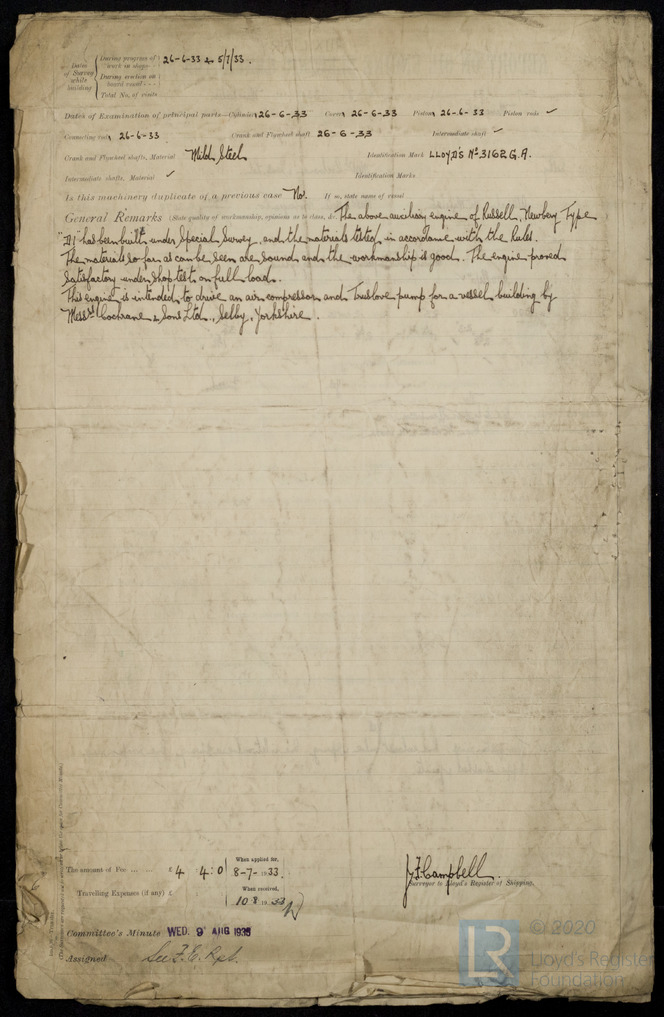 Dates of Survey while building
During progress of work in shops - - 26-6-33 & 5/7/33.
During erection on board vessel - - -
Total No. of visits
Dates of Examination of principal parts—Cylinders 26-6-33 Covers 26-6-33 Pistons 26-6-33 Piston rods ✓
Connecting rods 26-6-33 Crank and Flywheel shafts 26-6-33 Intermediate shafts ✓
Crank and Flywheel shafts, Material Mild Steel Identification Mark LLOYD'S No 3162 G.A.
Intermediate shafts, Material ✓ Identification Marks
Is this machinery duplicate of a previous case No. If so, state name of vessel
General Remarks (State quality of workmanship, opinions as to class, &c. The above auxiliary engine of Russell, Newbery Type
has been built under Special Survey and the materials tested in accordance with the Rules.
The materials so far as can be seen are sound and the workmanship is good. The engine proved
satisfactory under shop test on full load.
This engine is intended to drive an air compressor and Truslove pump for a vessel building by
Messrs Cochrane & Sons Ltd., Selby, Yorkshire.
The amount of Fee ... ... £ 4 4:0 When applied for, 8-7-1933.
Travelling Expenses (if any) £ When received, 10 8 1933
J.F. Campbell.
Surveyor to Lloyd's Register of Shipping.
Committee's Minute WED. 9 AUG 1933
Assigned See F.E. Rpt.
© 2020
LR
Lloyd's Register
Foundation